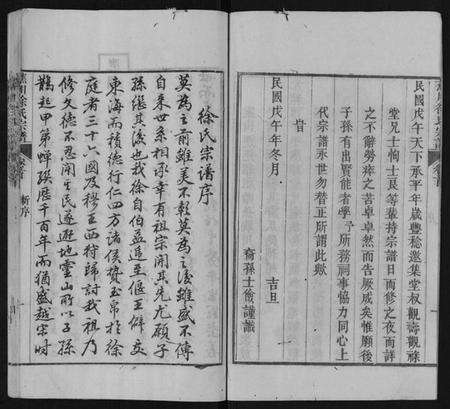 民國戊午天下承平年歲豐稔邀集堂叔觀壽觀祿
堂兄士恂士艮等輩持宗譜日而修之夜而詳
之不辭勞瘁之苦卓卓然而告厥成矣惟願後
子孫有出賢能者學 所務祠事協力同心上
代宗譜永世勿替正所謂此歟
旹
民國戊午年冬月 吉旦
裔孫士儉謹識
徐氏宗譜序
莫為之前雖美不彰莫為之後雖盛不傳
自來世系相承幸有祖宗開其先尤賴子
孫繼其後也我徐自伯益追至偃王僻處
東海而積德行仁四方諸侯贄玉帛於徐
庭者三十六國及穆王西狩歸討我祖乃
修文德不忍鬭生民遂遊地靈山所以子孫
鵲起甲第蟬聯歷千百年而猶盛越宋時
徐氏宗譜
卷首
新序